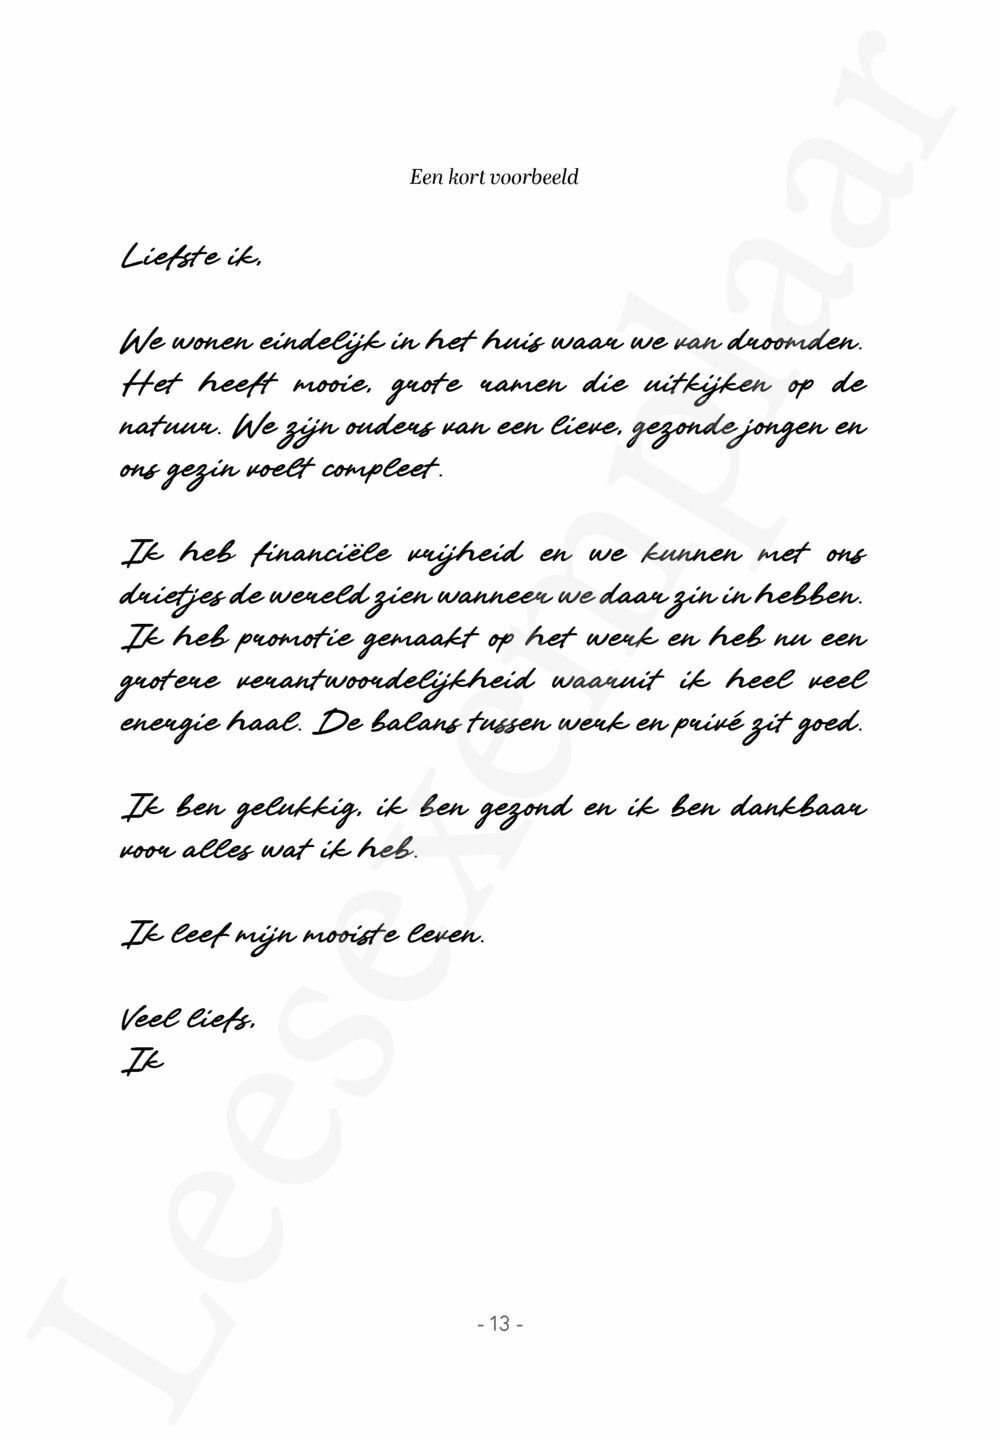 Een kort voorbeeld
Liefste ik,
We wonen eindelijk in het huis waar we van droomden.
Het heeft mooie, grote ramen die uitkijken op de
natuur. We zijn ouders van een lieve, gezonde jongen en
ons gezin voelt compleet.
Ik heb financiële vrijheid en we kunnen met ons
drietjes de wereld zien wanneer we daar zin in hebben.
Ik heb promotie gemaakt op het werk en heb nu een
grotere verantwoordelijkheid waaruit ik heel veel
energie haal. De balans tussen werk en privé zit goed.
Ik ben gelukkig, ik ben gezond en ik ben dankbaar
voor alles wat ik heb.
Ik leef mijn mooiste leven.
Veel liefs,
Ik
- 13 -
Leesexemplaar